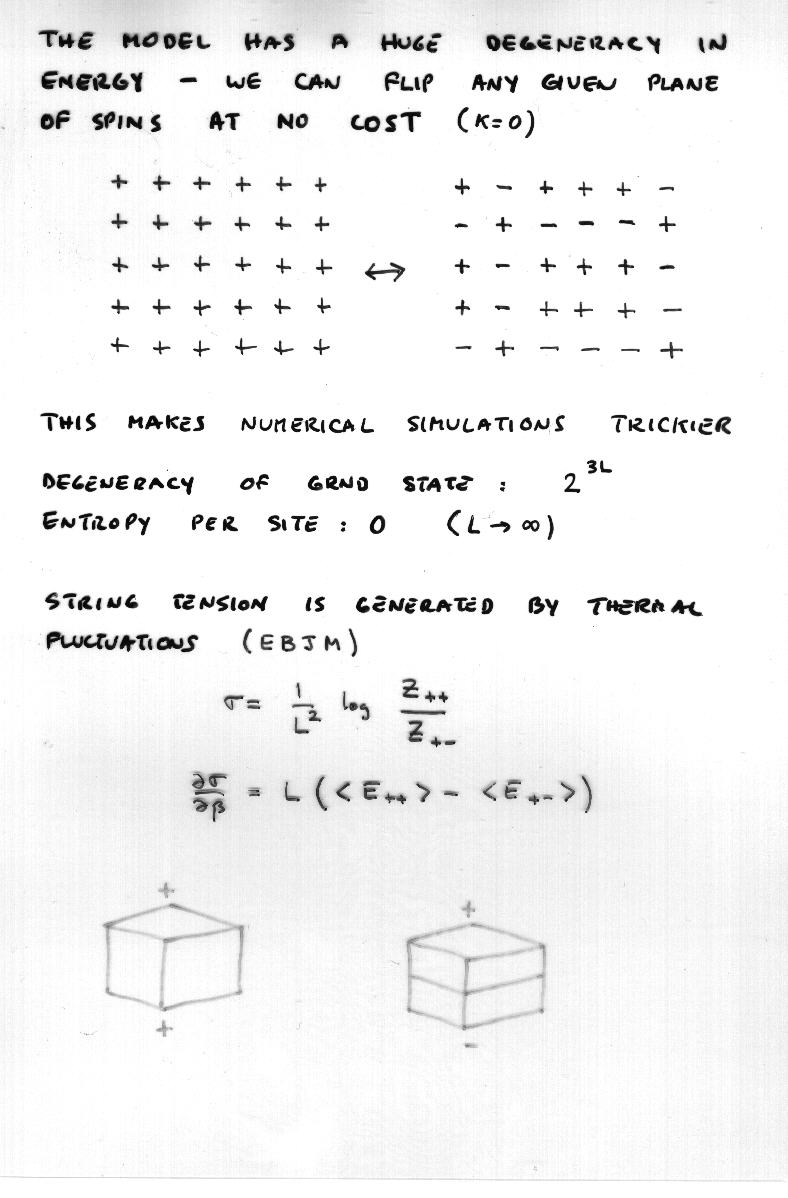 THE MODEL HAS A HUGE DEGENERACY IN
ENERGY - WE CAN FLIP ANY GIVEN PLANE
OF SPINS AT NO COST (K=0)
+ + + + + + + - + + + -
+ + + + + + - + - - - +
+ + + + + + ↔ + - + + + -
+ + + + + + + - + + + -
+ + + + + + - + - - - +
THIS MAKES NUMERICAL SIMULATIONS TRICKIER
DEGENERACY OF GRND STATE : 2^{3L}
ENTROPY PER SITE : 0 (L → ∞)
STRING TENSION IS GENERATED BY THERMAL
FLUCTUATIONS (EBJM)
σ = 1/L² log Z₊₊/Z₊₋
∂σ/∂β = L (<E₊₊> - <E₊₋>)
+ +
+ -